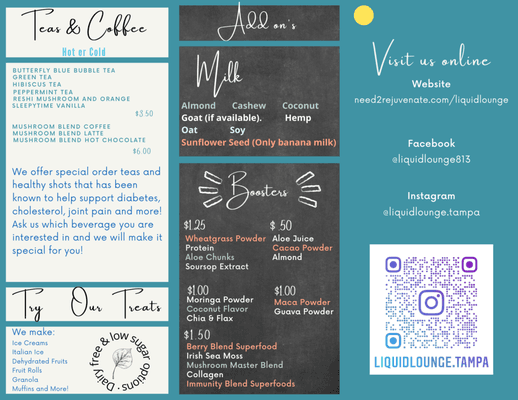 Teas & Coffee
Hot or Cold
BUTTERFLY BLUE BUBBLE TEA
GREEN TEA
HIBISCUS TEA
PEPPERMINT TEA
RESHI MUSHROOM AND ORANGE
SLEEPYTIME VANILLA
$3.50
MUSHROOM BLEND COFFEE
MUSHROOM BLEND LATTE
MUSHROOM BLEND HOT CHOCOLATE
$6.00
We offer special order teas and
healthy shots that has been
known to help support diabetes,
cholesterol, joint pain and more!
Ask us which beverage you are
interested in and we will make it
special for you!
Try Our Treats
We make:
Ice Creams
Italian Ice
Dehydrated Fruits
Fruit Rolls
Granola
Muffins and More!
Dairy free & low sugar options
Add on's
Milk
Almond Cashew Coconut
Goat (if available). Hemp
Oat Soy
Sunflower Seed (Only banana milk)
Boosters
$1.25
Wheatgrass Powder
Protein
Aloe Chunks
Soursop Extract
$ .50
Aloe Juice
Cacao Powder
Almond
$1.00
Moringa Powder
Coconut Flavor
Chia & Flax
$1.00
Maca Powder
Guava Powder
$1.50
Berry Blend Superfood
Irish Sea Moss
Mushroom Master Blend
Collagen
Immunity Blend Superfoods
Visit us online
Website
need2rejuvenate.com/liquidlounge
Facebook
@liquidlounge813
Instagram
@liquidlounge.tampa
LIQUIDLOUNGE.TAMPA